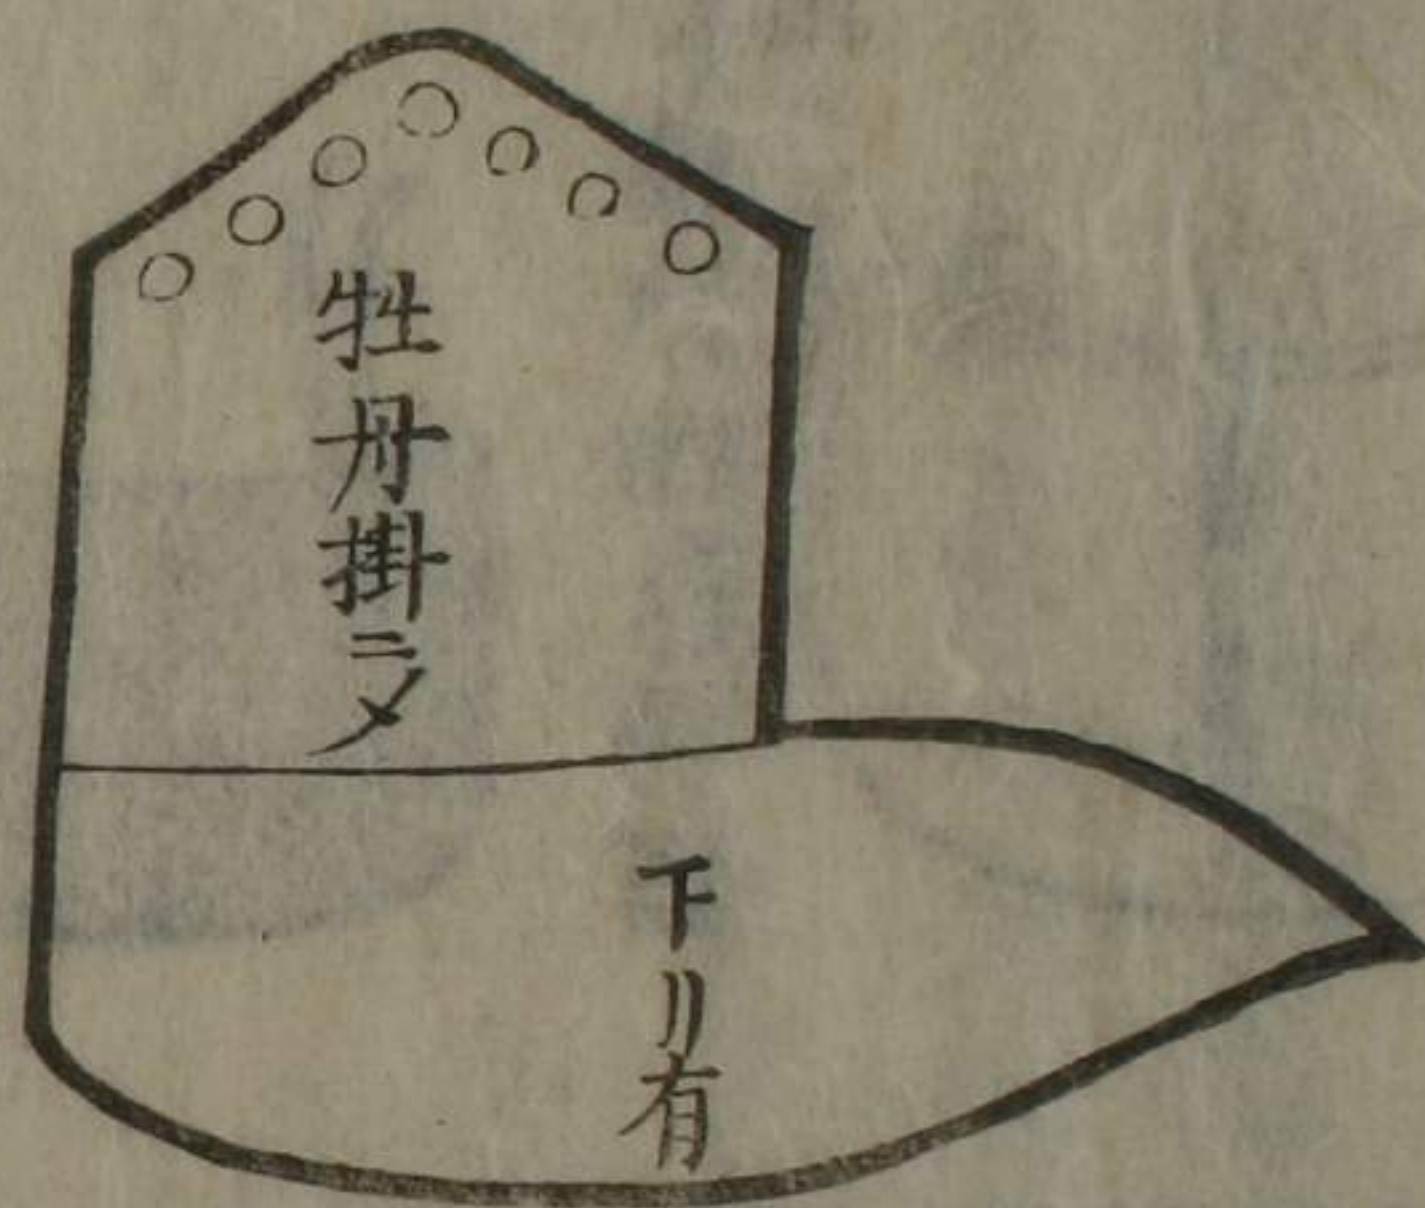 牡丹掛ニ〆
下リ有